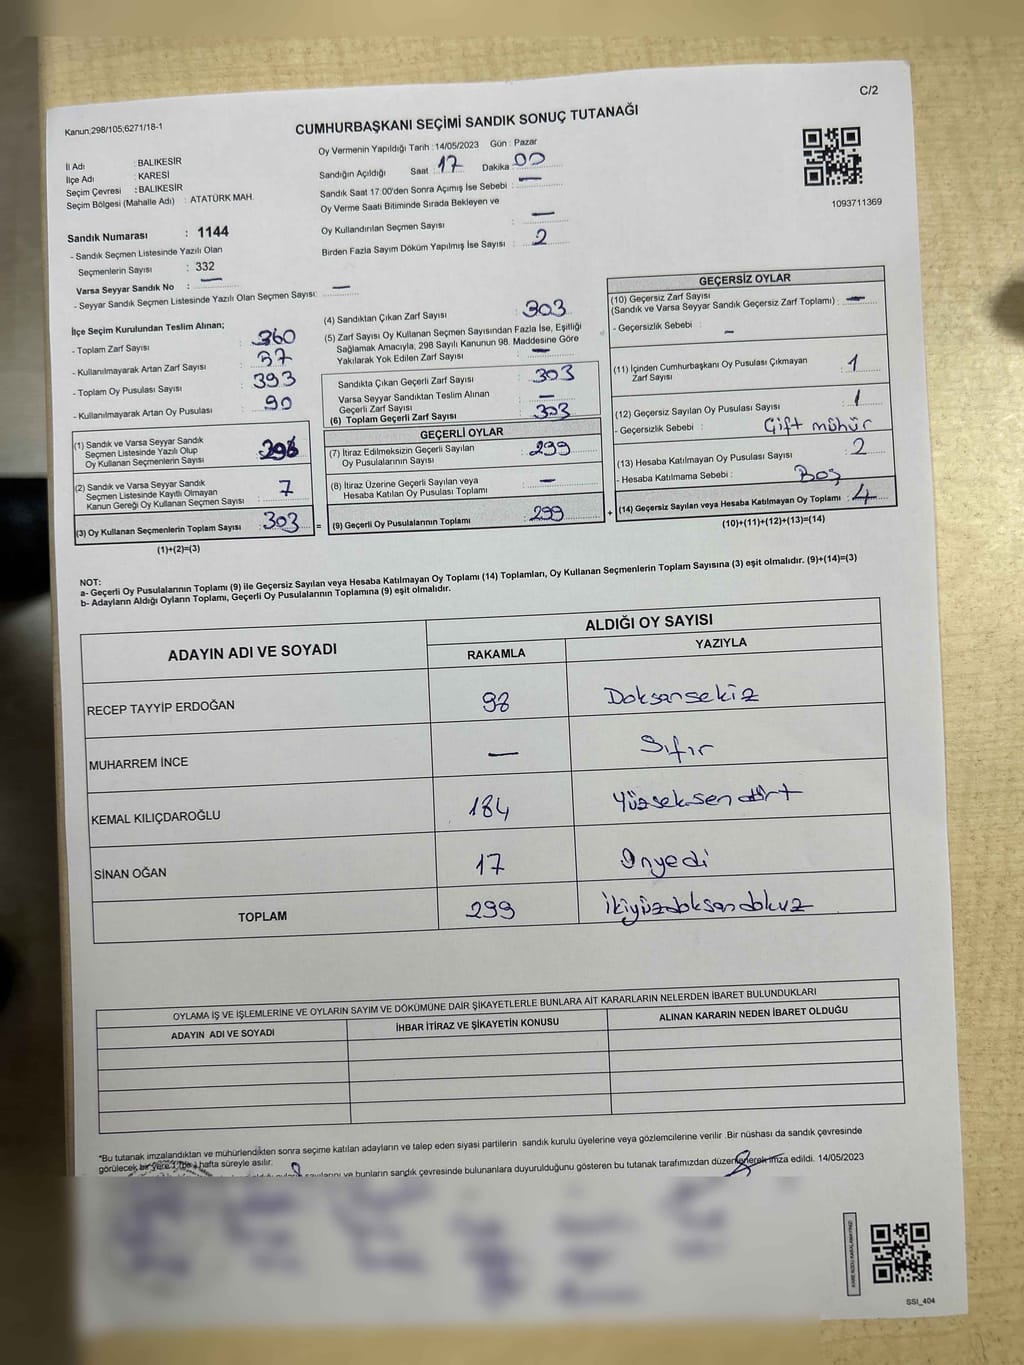 C/2
Kanun;298/105;6271/18-1
CUMHURBAŞKANI SEÇİMİ SANDIK SONUÇ TUTANAĞI
İl Adı : BALIKESİR
İlçe Adı : KARESİ
Seçim Çevresi : BALIKESİR
Seçim Bölgesi (Mahalle Adı) : ATATÜRK MAH.
Sandık Numarası : 1144
- Sandık Seçmen Listesinde Yazılı Olan
Seçmenlerin Sayısı : 332
Varsa Seyyar Sandık No : —
- Seyyar Sandık Seçmen Listesinde Yazılı Olan Seçmen Sayısı: —
Oy Vermenin Yapıldığı Tarih : 14/05/2023 Gün : Pazar
Sandığın Açıldığı Saat : 17 Dakika : 00
Sandık Saat 17:00'den Sonra Açımış İse Sebebi : —
Oy Verme Saati Bitiminde Sırada Bekleyen ve
Oy Kullandırılan Seçmen Sayısı : —
Birden Fazla Sayım Döküm Yapılmış İse Sayısı : 2
1093711369
İlçe Seçim Kurulundan Teslim Alınan;
- Toplam Zarf Sayısı : 360
- Kullanılmayarak Artan Zarf Sayısı : 57
- Toplam Oy Pusulası Sayısı : 393
- Kullanılmayarak Artan Oy Pusulası : 90
(1) Sandık ve Varsa Seyyar Sandık
Seçmen Listesinde Yazılı Olup
Oy Kullanan Seçmenlerin Sayısı : 296
(2) Sandık ve Varsa Seyyar Sandık
Seçmen Listesinde Kayıtlı Olmayan
Kanun Gereği Oy Kullanan Seçmen Sayısı : 7
(3) Oy Kullanan Seçmenlerin Toplam Sayısı : 303 =
(1)+(2)=(3)
(4) Sandıktan Çıkan Zarf Sayısı : 303
(5) Zarf Sayısı Oy Kullanan Seçmen Sayısından Fazla İse, Eşitliği
Sağlamak Amacıyla, 298 Sayılı Kanunun 98. Maddesine Göre
Yakılarak Yok Edilen Zarf Sayısı : —
Sandıkta Çıkan Geçerli Zarf Sayısı : 303
Varsa Seyyar Sandıktan Teslim Alınan
Geçerli Zarf Sayısı : —
(6) Toplam Geçerli Zarf Sayısı : 303
GEÇERLİ OYLAR
(7) İtiraz Edilmeksizin Geçerli Sayılan
Oy Pusulalarının Sayısı : 299
(8) İtiraz Üzerine Geçerli Sayılan veya
Hesaba Katılan Oy Pusulası Toplamı : —
(9) Geçerli Oy Pusulalarının Toplamı : 299 +
GEÇERSİZ OYLAR
(10) Geçersiz Zarf Sayısı
(Sandık ve Varsa Seyyar Sandık Geçersiz Zarf Toplamı) : —
- Geçersizlik Sebebi : —
(11) İçinden Cumhurbaşkanı Oy Pusulası Çıkmayan
Zarf Sayısı : 1
(12) Geçersiz Sayılan Oy Pusulası Sayısı : 1
- Geçersizlik Sebebi : Çift mühür
(13) Hesaba Katılmayan Oy Pusulası Sayısı : 2
- Hesaba Katılmama Sebebi : Boş
(14) Geçersiz Sayılan veya Hesaba Katılmayan Oy Toplamı : 4
(10)+(11)+(12)+(13)=(14)
NOT:
a- Geçerli Oy Pusulalarının Toplamı (9) ile Geçersiz Sayılan veya Hesaba Katılmayan Oy Toplamı (14) Toplamları, Oy Kullanan Seçmenlerin Toplam Sayısına (3) eşit olmalıdır. (9)+(14)=(3)
b- Adayların Aldığı Oyların Toplamı, Geçerli Oy Pusulalarının Toplamına (9) eşit olmalıdır.
ADAYIN ADI VE SOYADI ALDIĞI OY SAYISI
RAKAMLA YAZIYLA
RECEP TAYYİP ERDOĞAN 98 Doksansekiz
MUHARREM İNCE — Sıfır
KEMAL KILIÇDAROĞLU 184 Yüzseksendört
SİNAN OĞAN 17 Onyedi
TOPLAM 299 İkiyüzdoksandokuz
OYLAMA İŞ VE İŞLEMLERİNE VE OYLARIN SAYIM VE DÖKÜMÜNE DAİR ŞİKAYETLERLE BUNLARA AİT KARARLARIN NELERDEN İBARET BULUNDUKLARI
ADAYIN ADI VE SOYADI İHBAR İTİRAZ VE ŞİKAYETİN KONUSU ALINAN KARARIN NEDEN İBARET OLDUĞU
*Bu tutanak imzalandıktan ve mühürlendikten sonra seçime katılan adayların ve talep eden siyasi partilerin sandık kurulu üyelerine veya gözlemcilerine verilir .Bir nüshası da sandık çevresinde
görülecek bir yere 1 hafta süreyle asılır.
sayılarını ve bunların sandık çevresinde bulunanlara duyurulduğunu gösteren bu tutanak tarafımızdan düzenlenerek imza edildi. 14/05/2023
SSI_404